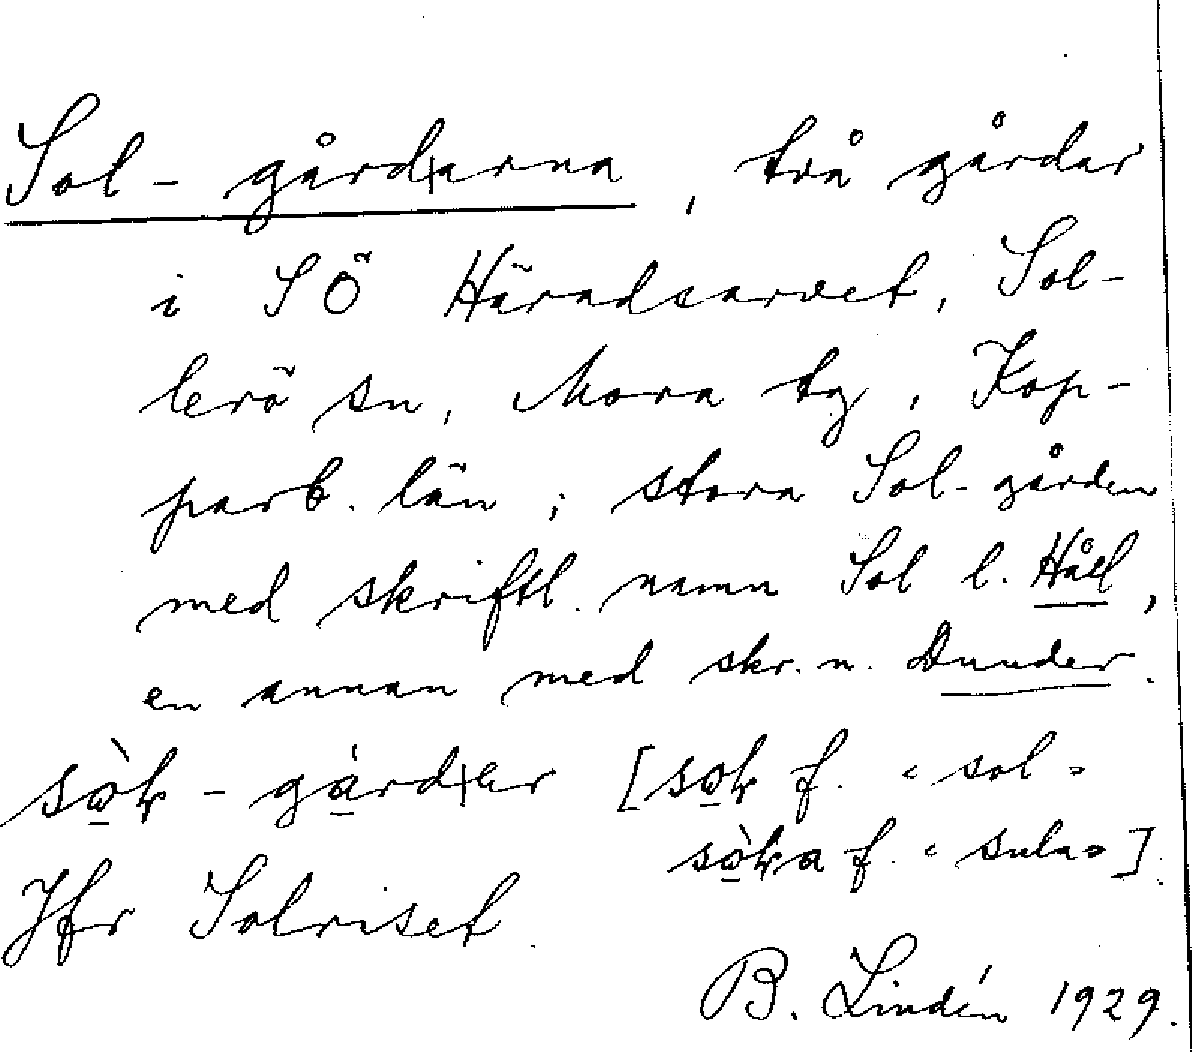 Sol-gårdarna, två gårdar
i SÖ Häradsarvet, Sol-
lerö sn, Mora tg, Kop-
parb. län; stora Sol-gården
med skriftl. namn Sol l. Håll,
en annan med skr. n. Dunder.
- gårder [ f. «sol»
f. «sula»].
Jfr Solriset.
B. Lindén 1929.